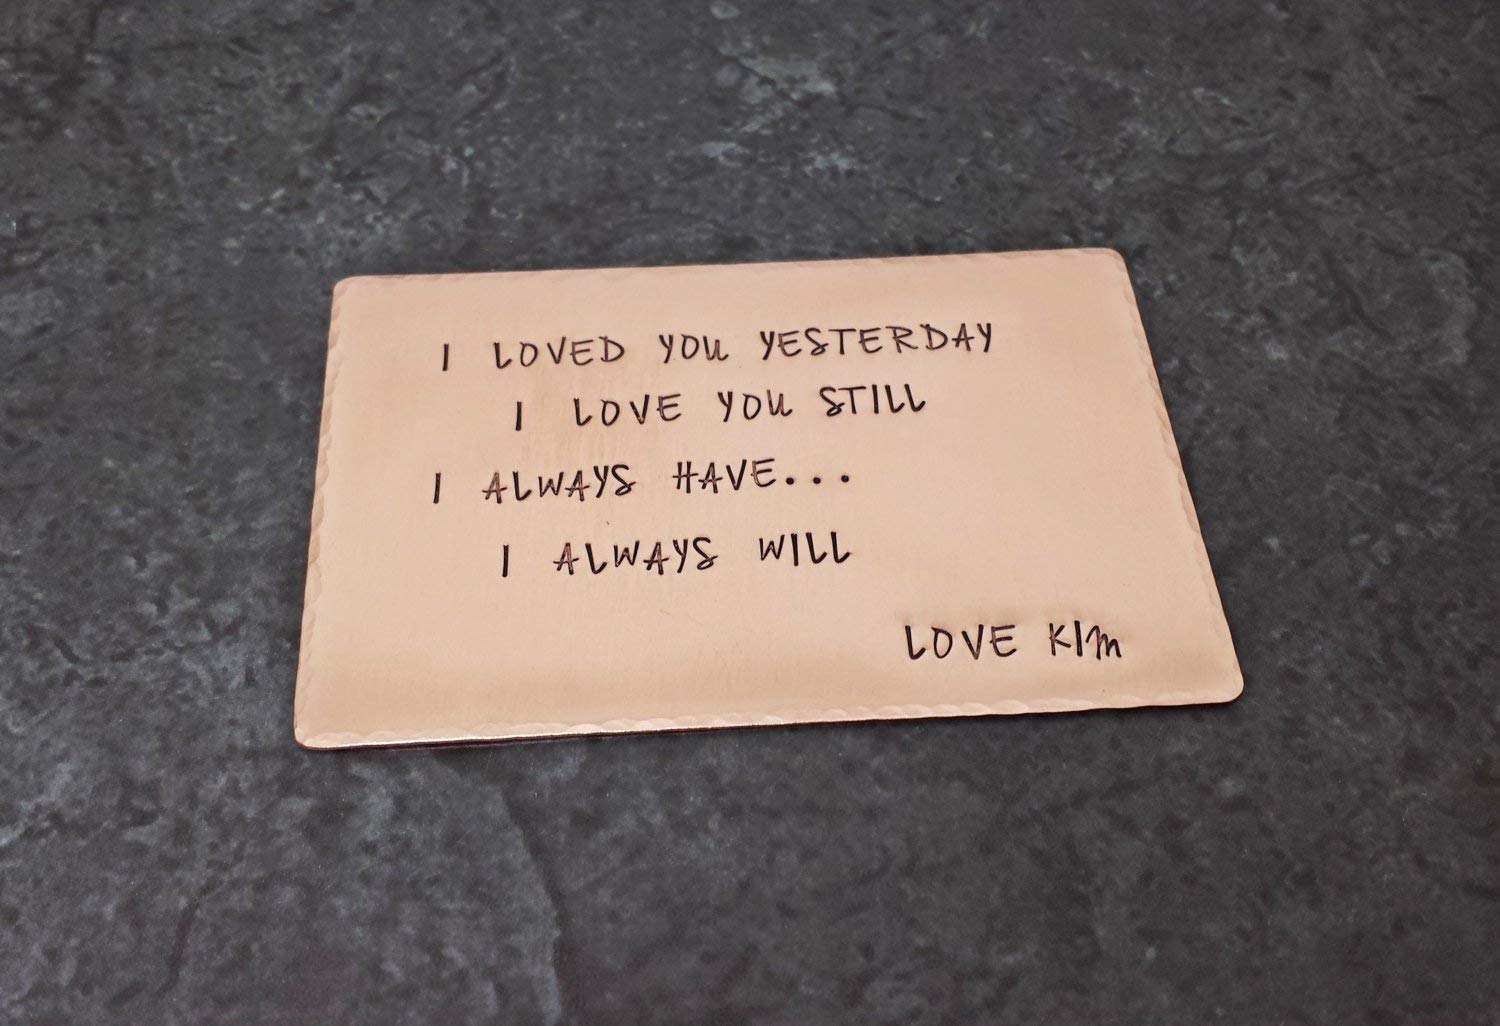 I LOVED YOU YESTERDAY
I LOVE YOU STILL
I ALWAYS HAVE...
I ALWAYS WILL
LOVE KIM